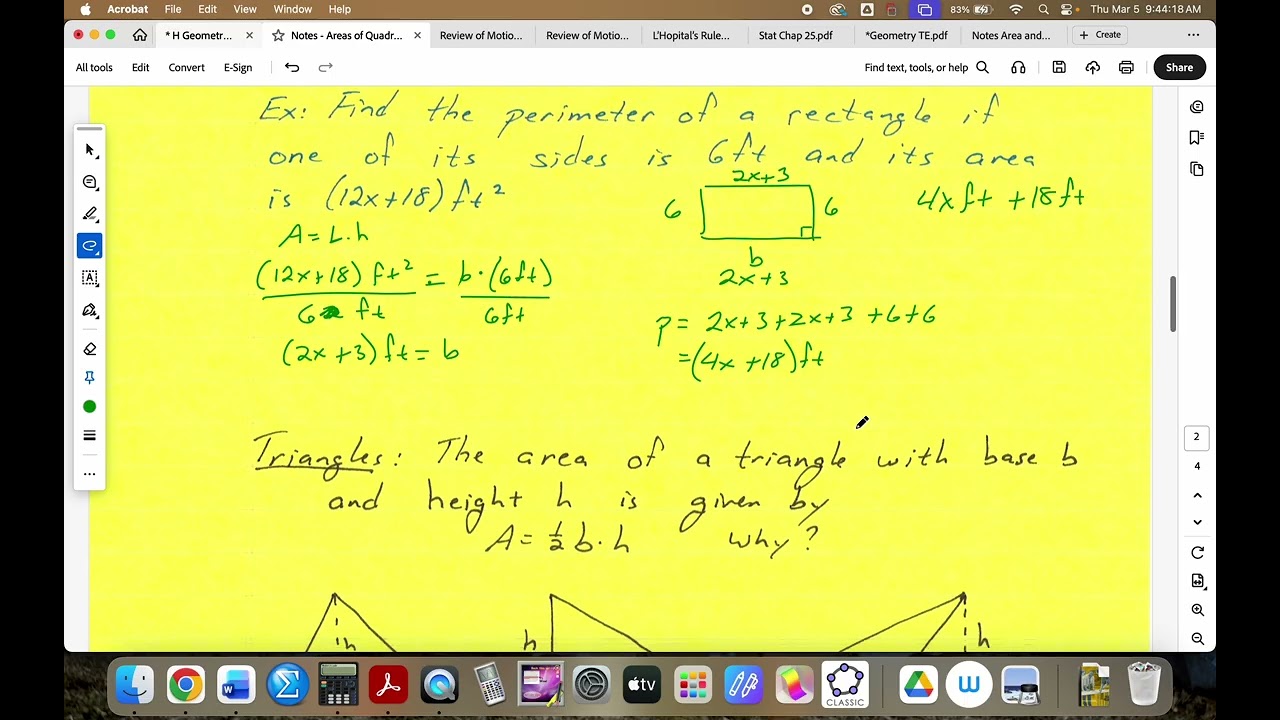 Acrobat File Edit View Window Help 83% Thu Mar 5 9:44:18 AM
* H Geometr... Notes - Areas of Quadr... Review of Motio... Review of Motio... L'Hopital's Rule... Stat Chap 25.pdf *Geometry TE.pdf Notes Area and... + Create
All tools Edit Convert E-Sign Find text, tools, or help Share
Ex: Find the perimeter of a rectangle if
one of its sides is 6ft and its area
is (12x+18) ft²
2x+3
6 6
4x ft + 18 ft
A = L·h
b
2x+3
(12x+18) ft² = b·(6ft)
6 ft 6ft
(2x+3) ft = b
p = 2x+3+2x+3+6+6
=(4x+18)ft
Triangles: The area of a triangle with base b
and height h is given by
A = ½ b·h why?
h h h
2
4
tv
W
CLASSIC